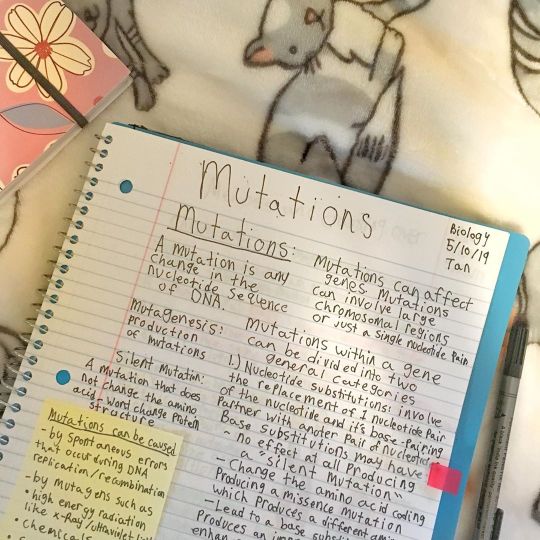 Mutations
Biology
5/10/19
Tan
Mutations:
A mutation is any
change in the
nucleotide sequence
of DNA.
Mutagenesis:
production
of mutations
Silent Mutation:
A mutation that does
not change the amino
acid, word change protein
structure
Mutations can be caused
- by spontaneous errors
that occur during DNA
replication/recombination
- by mutagens such as
• high energy radiation
like x-Ray/ultraviolet
• chemicals
Mutations can affect
genes. Mutations
can involve large
chromosomal regions
or just a single nucleotide pair
Mutations within a gene
can be divided into two
general categories
1.) Nucleotide substitutions: involve
the replacement of 1 nucleotide Pair
of the nucleotide and it's base-pairing
Partner with another Pair of nucleotides
Base substitutions may have
- no effect at all Producing
a "Silent Mutation"
- Change the amino acid coding
Producing a missence mutation
which produces a different amino
- Lead to a base substit
Produces an
enhan